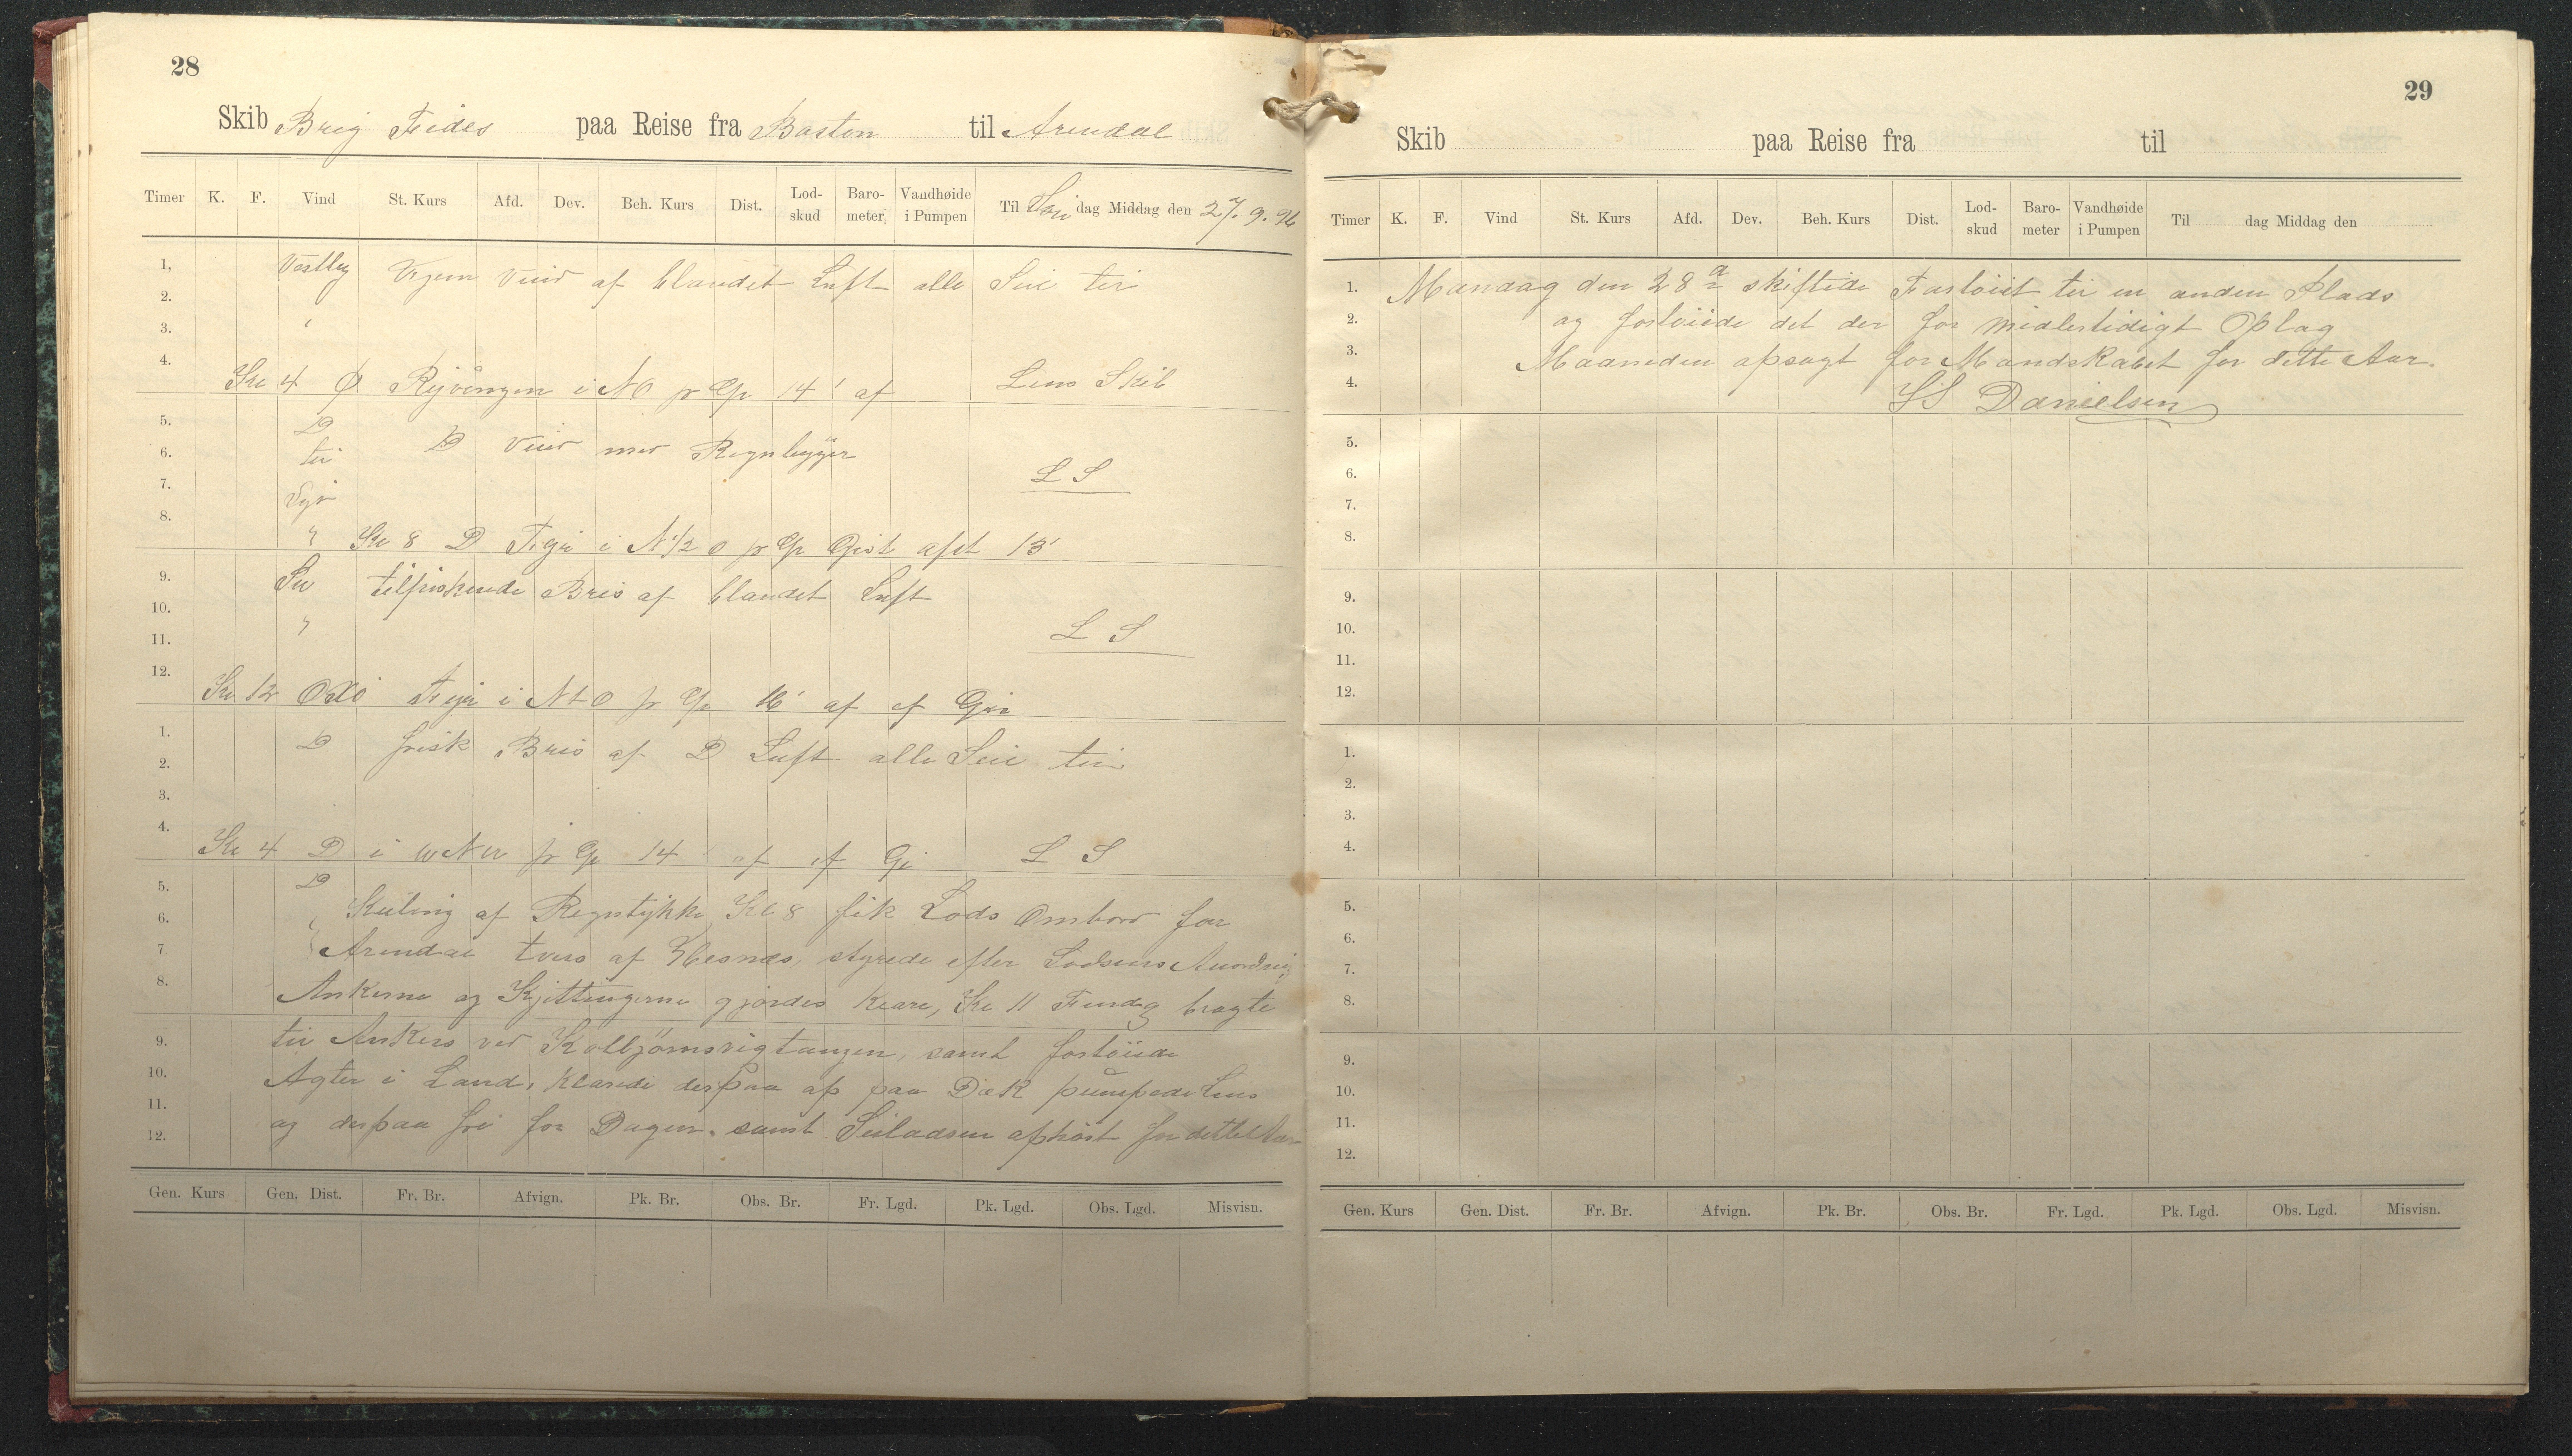 28
Skib Brig Fides paa Reise fra Boston til Arendal
Timer K. F. Vind St. Kurs Afd. Dev. Beh. Kurs Dist. Lod-skud Baro-meter Vandhøide i Pumpen Til Søn dag Middag den 27. 9. 96
1, Vestlig Kjem Veir af blandet Luft alle Seil til
2.
3. "
4.
Kl 4 Ø Ryvingen i NO pr Cp 14' af Lens Skib
5. D
6. til D Veir med Regnbyger
7. Syd L S
8.
" Kl 8 D Fyr i N 1/2 O pr Cp Gist afst 13'
9. SW tilfriskende Bris af blandet Luft
10. "
11. L S
12.
Kl 12 Oxø Fyr i NtO pr Cp 16' af ef Gis
1. D frisk Bris af D Luft alle Seil til
2.
3.
4.
Kl 4 D i WNW pr Cp 14 af ef Gi L S
5. D
6. " Kuling af Regntykke, Kl 8 fik Lods Ombord for
7 " Arendal tvers af Hesnes, styrede efter Lodsens Anordning
8. Ankerne og Kjettingerne gjordes klare, Kl 11 Formdg bragte
9. til Ankers ved Kolbjørnsvigtangen, samt fortøiede
10. Agter i Land, klarede derpaa op paa Dæk pumpede Lens
11. og derpaa fri for Dagen. samt Seiladsen ophørt for dette Aar
12.
Gen. Kurs Gen. Dist. Fr. Br. Afvign. Pk. Br. Obs. Br. Fr. Lgd. Pk. Lgd. Obs. Lgd. Misvisn.
29
Skib paa Reise fra til
Timer K. F. Vind St. Kurs Afd. Dev. Beh. Kurs Dist. Lod-skud Baro-meter Vandhøide i Pumpen Til dag Middag den
1. Mandag den 28de skiftede Fartøiet til en anden Plads
2. og fortøiede det der for midlertidigt Oplag
3. Maaneden opsagt for Mandskabet for dette Aar.
4. SS Danielsen
5.
6.
7.
8.
9.
10.
11.
12.
1.
2.
3.
4.
5.
6.
7.
8.
9.
10.
11.
12.
Gen. Kurs Gen. Dist. Fr. Br. Afvign. Pk. Br. Obs. Br. Fr. Lgd. Pk. Lgd. Obs. Lgd. Misvisn.